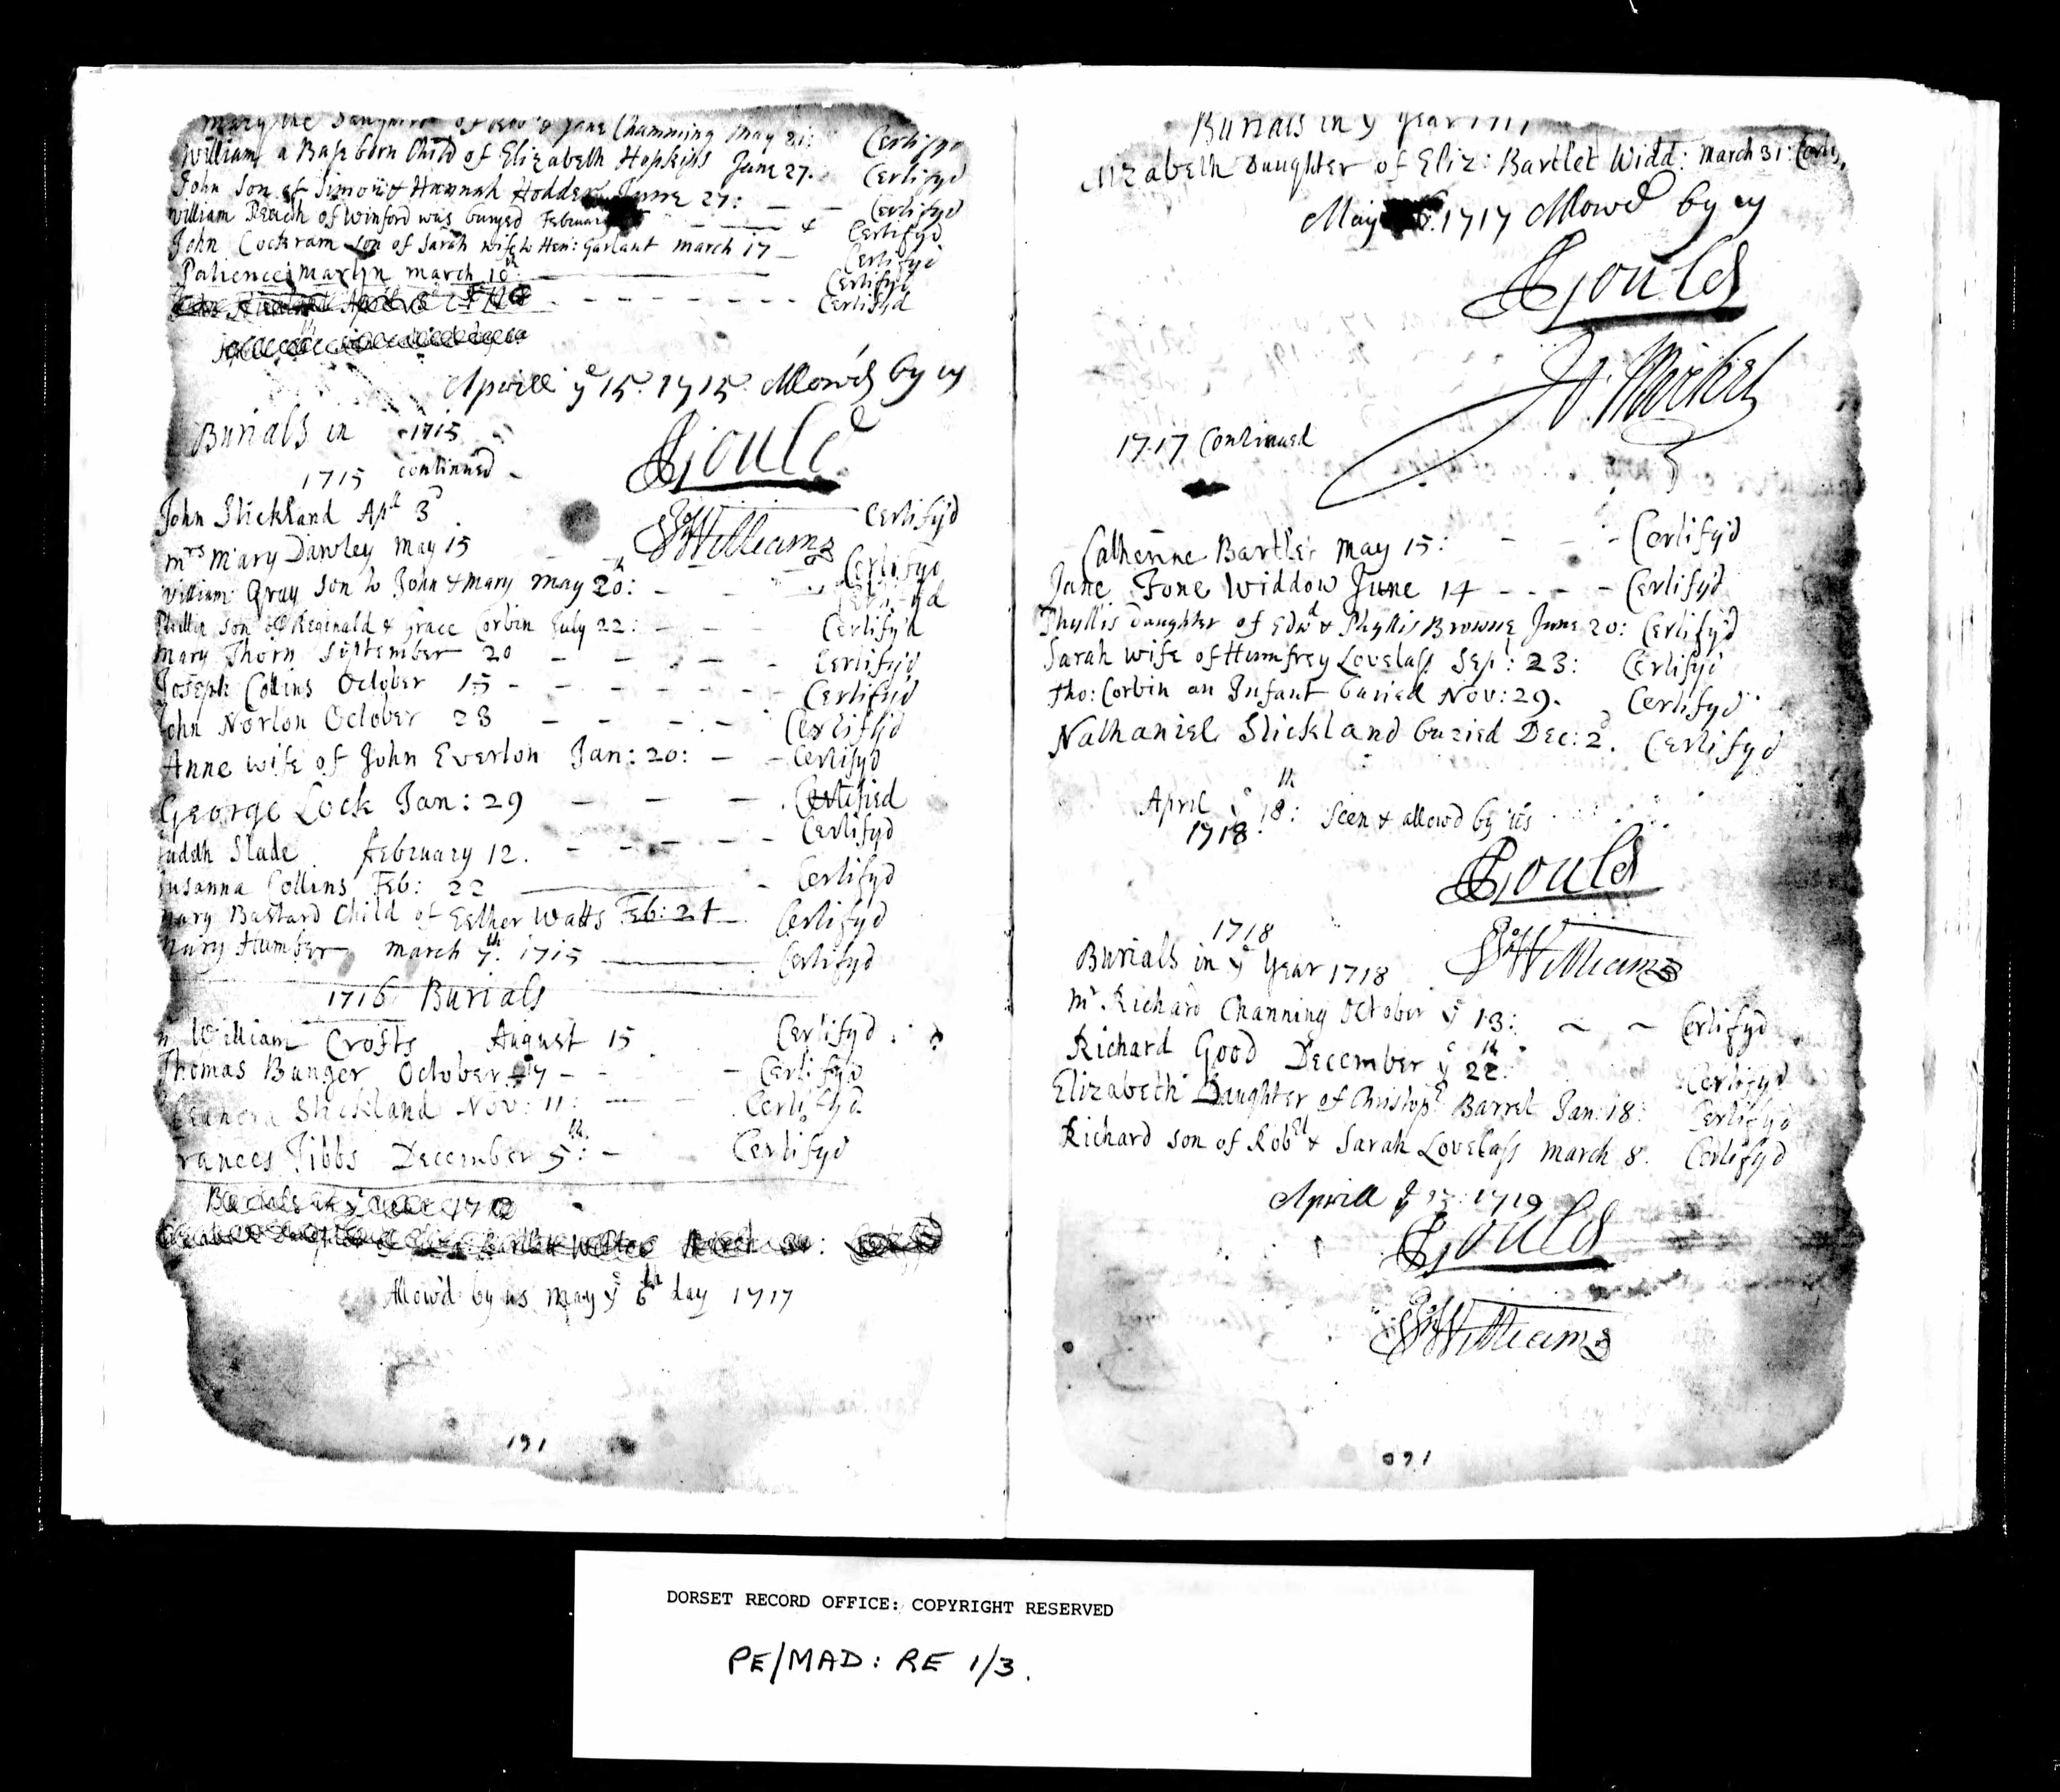 Mary the Daughter of Jane Channing May 21: Certifyd
William a Base born Child of Elizabeth Hopkins June 27. Certifyd
John Son of Simon & Hannah Hodder June 27: — — Certifyd
William of Winford was buryed February — Certifyd
John Cockram Son of Sarah wife to Hen: Garlant March 17 — Certifyd
Patience Martyn March 10th: Certifyd
Certifyd
Aprill ye 15. 1715. Allow'd by us
Burials in 1715
Gould
1715 continued
John Stickland Apll 3d Certifyd
JoWilliams
Mrs Mary Dawley May 15 Certifyd
William Gray Son to John & Mary May 20th: — —
Son of Reginald & Grace Corbin July 22: — — — Certify'd
Mary Thorn September 20 — — — — Certifyd
Joseph Collins October 15 - - - - - Certifyd
John Norton October 28 — — — - Certifyd
Anne wife of John Everton Jan: 20: — - Certifyd
George Lock Jan: 29 — — — Certified
Judith Slade February 12. - - - - - Certifyd
Susanna Collins Feb: 22 Certifyd
Mary Bastard Child of Esther Watts Feb: 24 Certifyd
Mary Humber March 7th. 1715 Certifyd
1716 Burials
William Crofts August 15 Certifyd
Thomas Bunger October 17 - - - - Certifyd
Eleanora Stickland Nov: 11: — — Certifyd
Frances Tibbs December 5th: - - Certifyd
Allow'd by us May ye 6th day 1717
191
Burials in ye Year 1717
Elizabeth Daughter of Eliz: Bartlet Widd: March 31:
May 6. 1717 Allowd by us
Gould
1717 Continued
Catherine Bartlet May 15: - - - Certifyd
Jane Fone Widdow June 14 - - - - Certifyd
Phyllis Daughter of Edwd & Phyllis Browne June 20: Certifyd
Sarah wife of Humfrey Lovelass Sep: 23: Certifyd
Tho: Corbin an Infant buried Nov: 29. Certifyd
Nathaniel Stickland buried Dec: 2d. Certifyd
April ye 18th: Seen & allowd by us
1718
Gould
1718
JoWilliams
Burials in ye Year 1718
Mr. Richard Channing October ye 13: ~ ~ Certifyd
Richard Good December ye 22th: Certifyd
Elizabeth Daughter of Christopr Barret Jan: 18: Certifyd
Richard son of Robrt & Sarah Lovelass March 8. Certifyd
Aprill ye 13: 1719
Gould
JoWilliams
091
DORSET RECORD OFFICE: COPYRIGHT RESERVED
PE/MAD: RE 1/3.